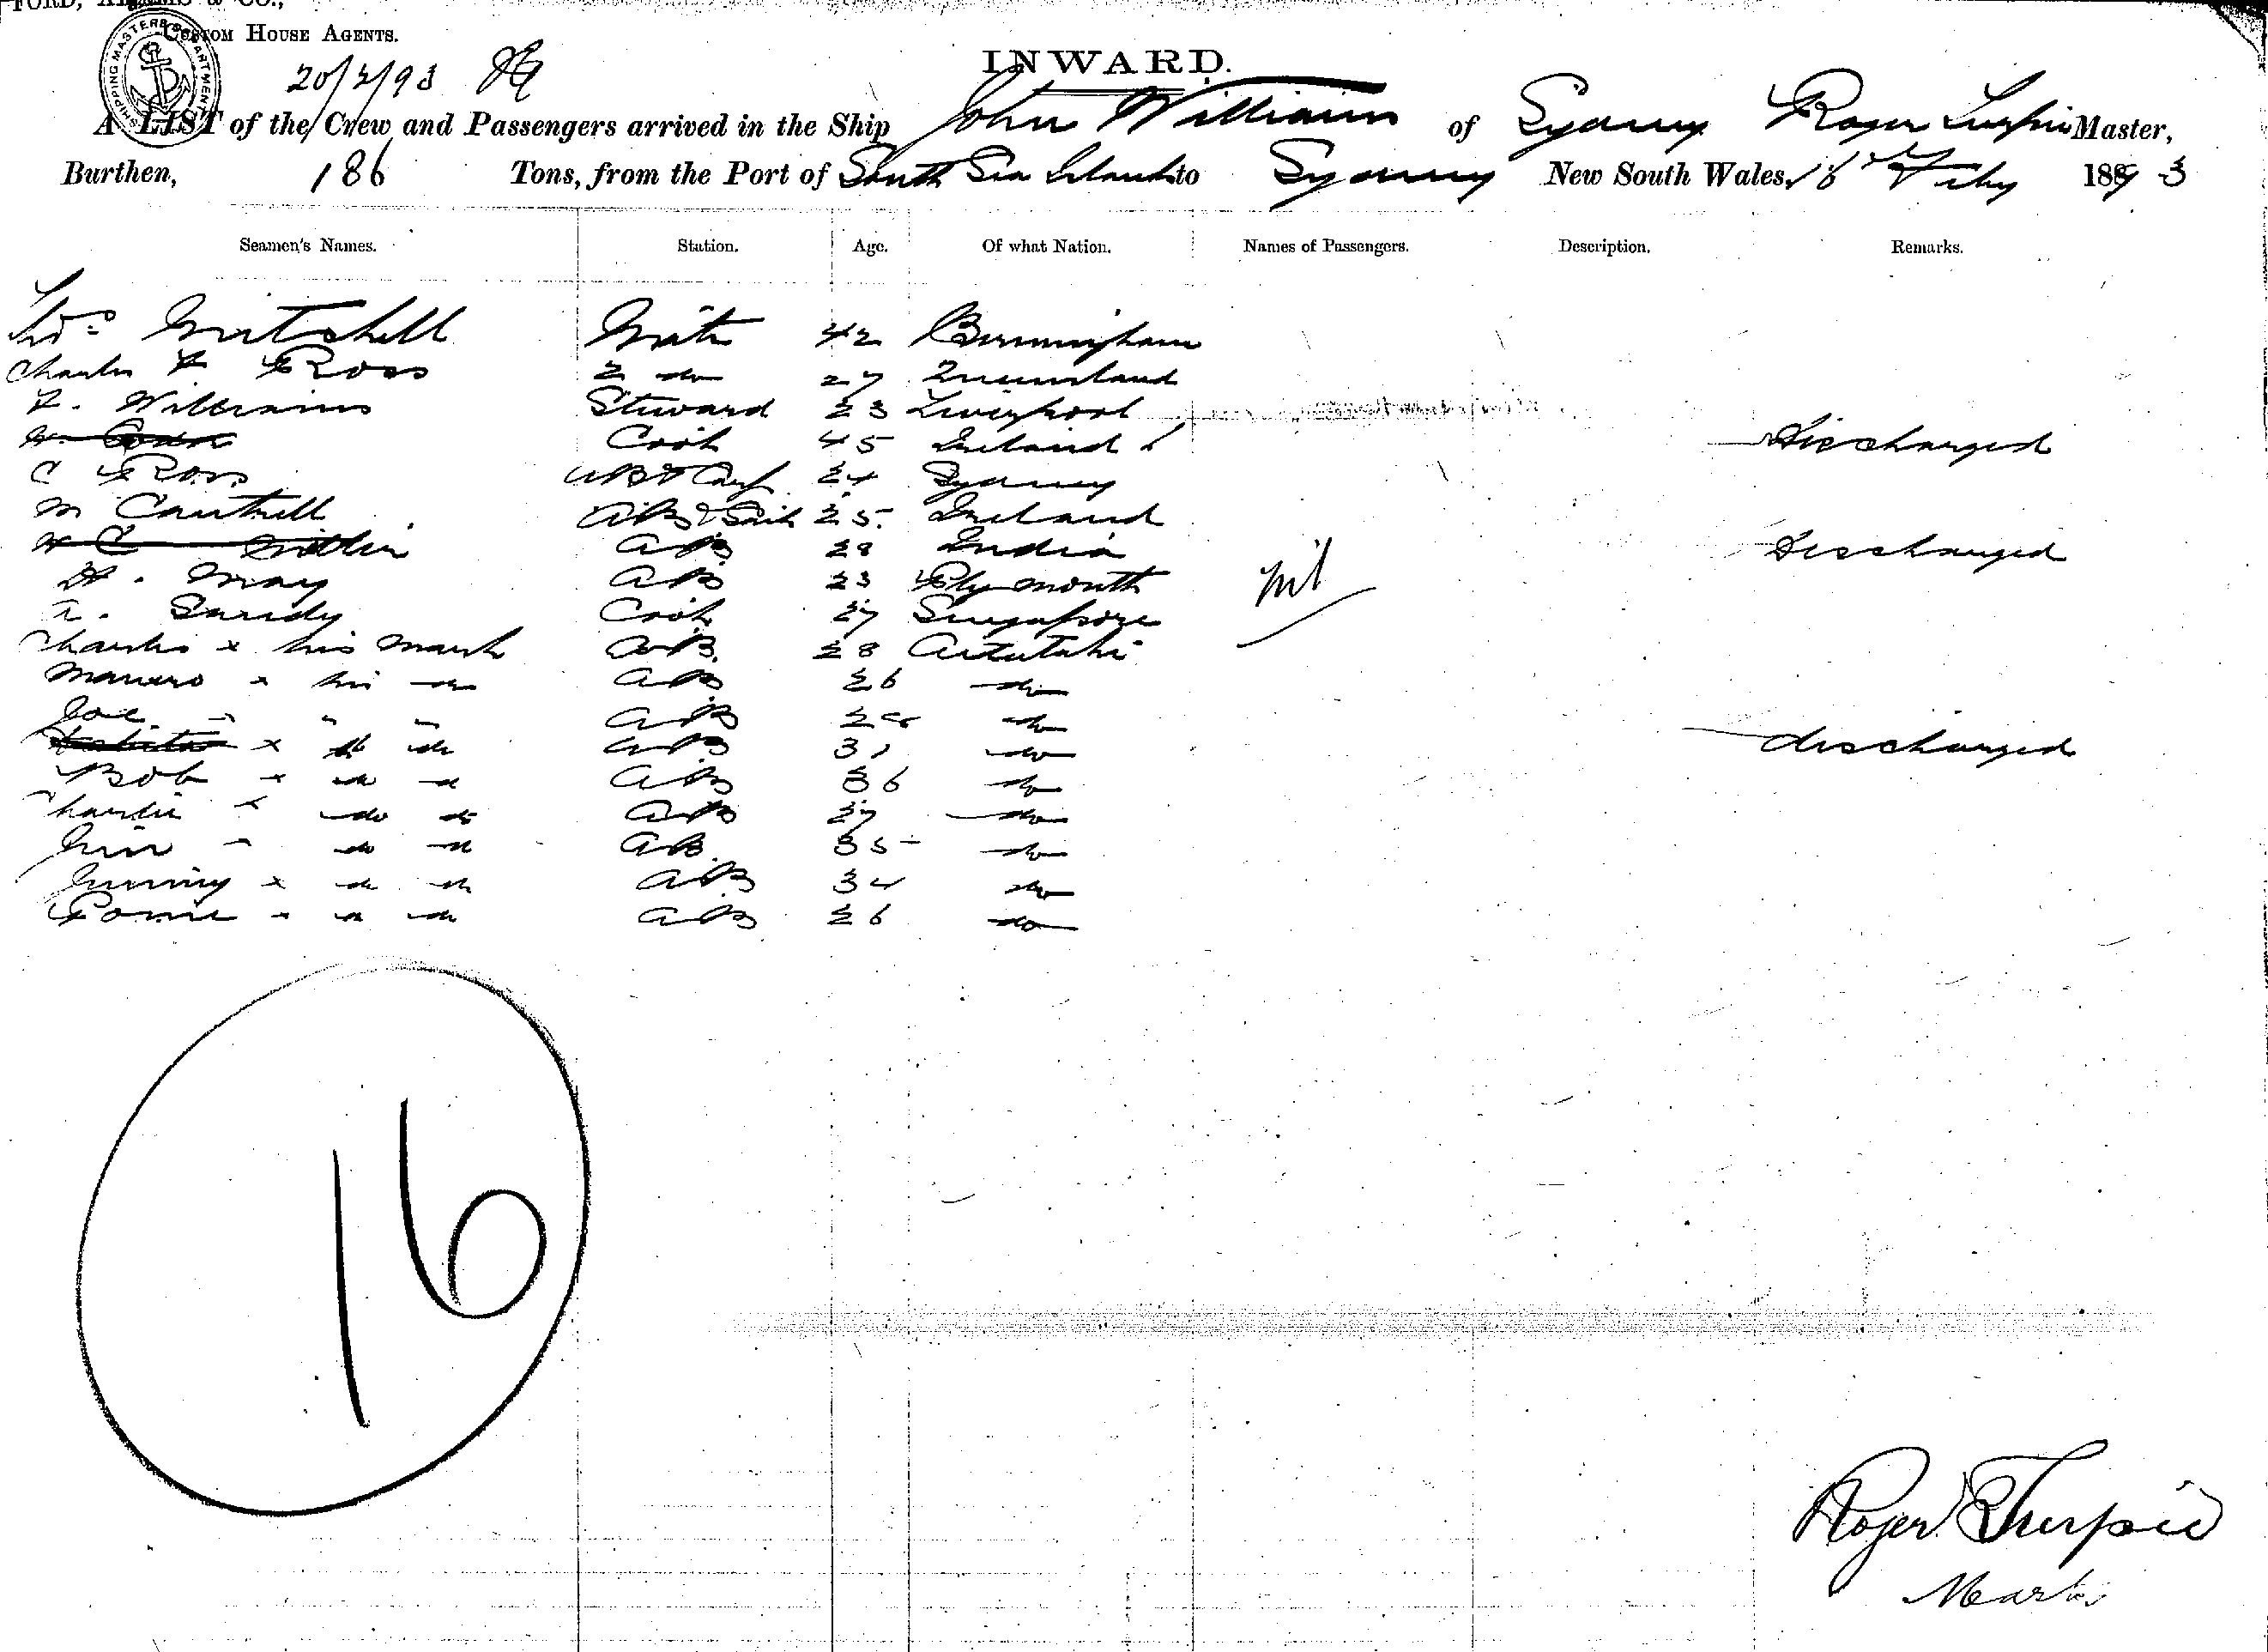 FORD, ADAMS & CO.,
CUSTOM HOUSE AGENTS.
SHIPPING MASTERS DEPARTMENT
20/2/93
INWARD.
A LIST of the Crew and Passengers arrived in the Ship John Williams of Sydney Roger Turpie Master,
Burthen, 186 Tons, from the Port of South Sea Islands to Sydney New South Wales, 18th Feby 1893
Seamen's Names. Station. Age. Of what Nation. Names of Passengers. Description. Remarks.
Thos Mitchell Mate 42 Birmingham
Charles F Ross 2 do 27 Queensland
F. Williams Steward 23 Liverpool
Cook 45 Ireland Discharged
C Ross AB & Carp 24 Sydney
M Cauthell AB & Sail 25 Ireland
AB 28 India Discharged
H. May AB 23 Plymouth
Nil
A. Sundy Cook 27 Singapore
Charles x his mark AB 28 Aitutaki
x his do AB 26 do
Joe " " AB do
x do do AB 31 do discharged
Bob x do do AB 36 do
Charlie x do do AB 27 do
Jim - do do AB 35 do
Jimmy x do do AB 34 do
x do do AB 26 do
16
Roger Turpie
Master